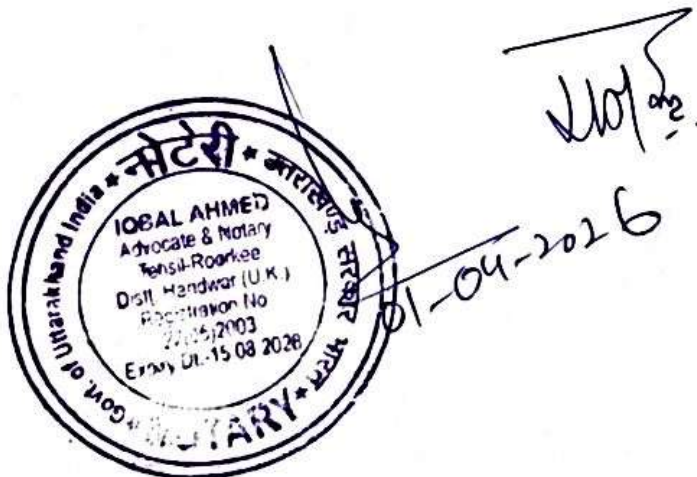 नोटेरी * उत्तराखण्ड सरकार भारत *
Govt. of Uttarakhand India *
IQBAL AHMED
Advocate & Notary
Tehsil-Roorkee
Distt. Haridwar (U.K.)
Registration No
2003
Expiry Dt.-15.08.2028
NOTARY
01-04-2026